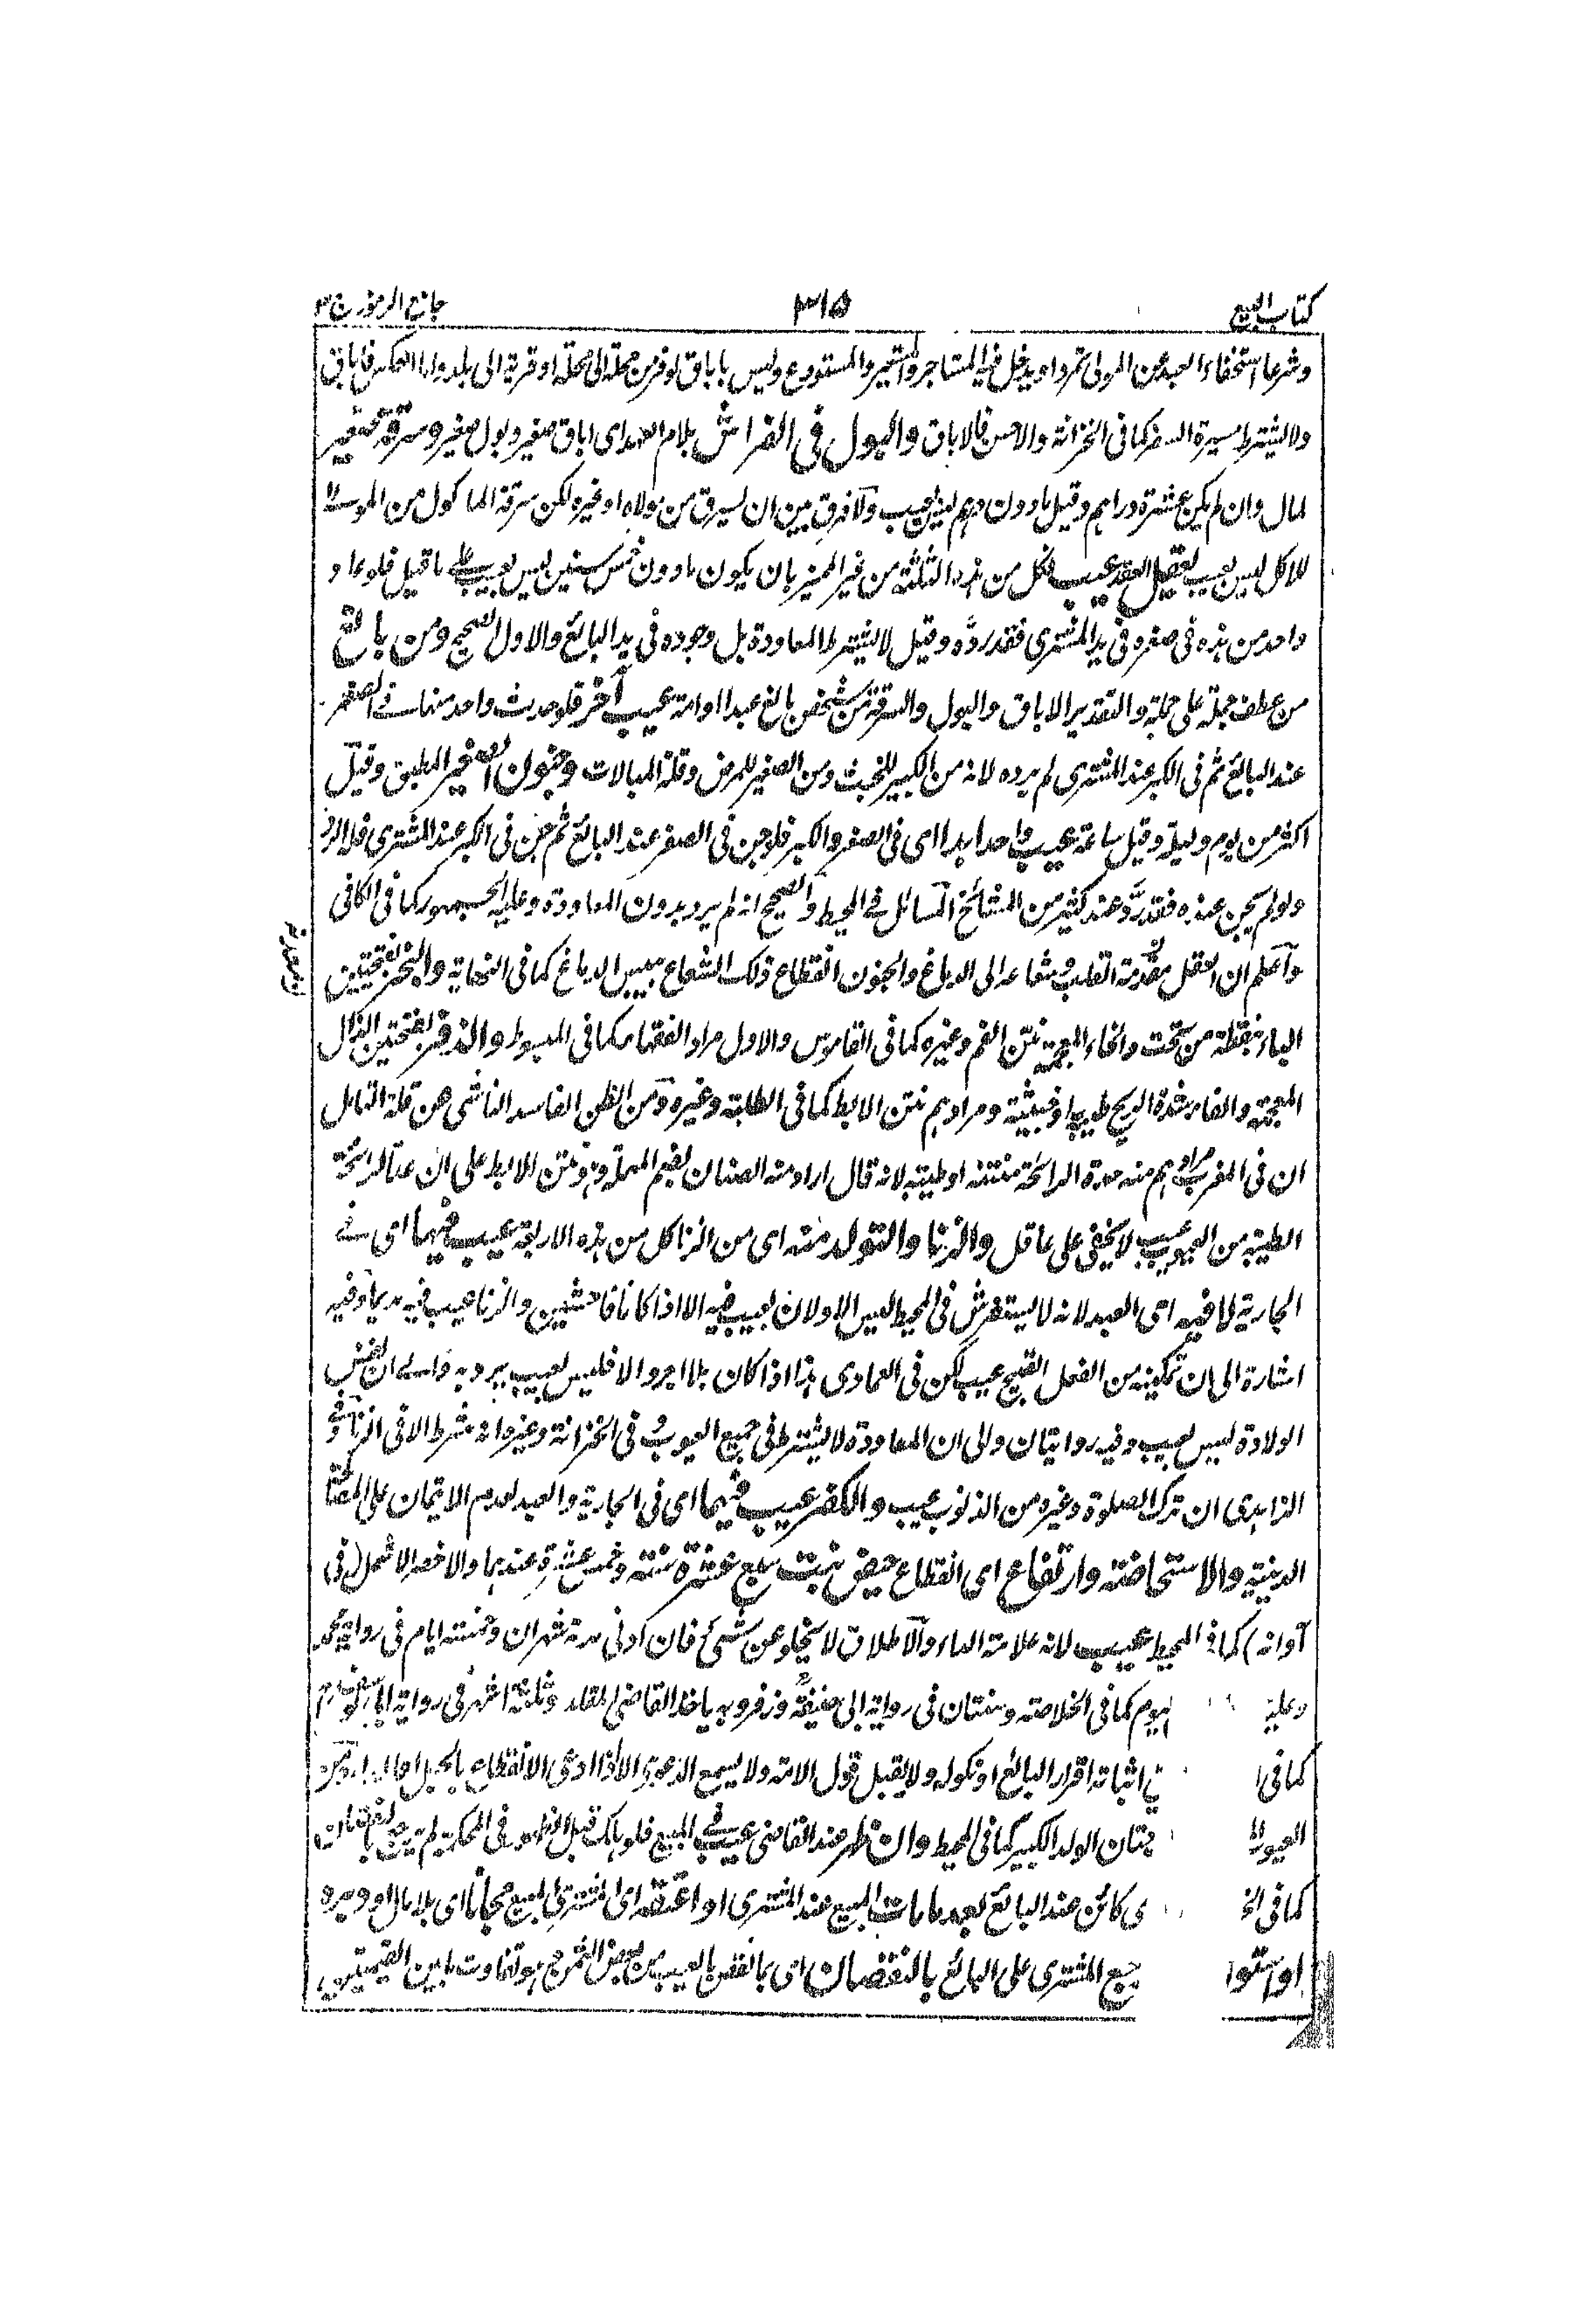 كتاب البيع ٣١٥ جامع الرموز ج ٣
وشرعا استخفاء العبد عن المولى تمردا ويدخل فيه المستاجر والمستعير والمستودع وليس باباق لو فر من محلة الى محلة او قرية الى بلد واما العكس فاباق
ولا يشترط مسيرة السفر كما فى الخزانة والاحسن فالاباق والبول فى الفراش بلام العهد اى اباق صغير وبول صغير وسرقة صغير
لمال وان لم يكن عشرة دراهم وقيل ما دون درهم ليس بعيب ولا فرق بين ان يسرق من مولاه او غيره لكن سرقة الماكول من المولى
للاكل ليس بعيب يعقل العقد عيب فكل من هذه الثلثة من غير المميز بان يكون ما دون خمس سنين ليس بعيب على ما قيل فلو عاد
واحد من هذه فى صغره فى يد المشترى فقد رده وقيل لا يشترط المعاودة بل وجوده فى يد البائع والاول الصحيح ومن بالغ
من عطف جملة على جملة والتقدير الاباق والبول والسرقة من شخص بالغ عبدا او امة عيب آخر فلو حدث واحد منها فى الصغر
عند البائع ثم فى الكبر عند المشترى لم يرده لانه من الكبير للخبث ومن الصغير للمرض وقلة المبالات وجنون الصغير المطبق وقيل
اكثر من يوم وليلة وقيل ساعة عيب واحد ابدا اى فى الصغر والكبر فلو جن فى الصغر عند البائع ثم جن فى الكبر عند المشترى فله الرد
ولو لم يجن عنده فقد رد وعند كثير من المشائخ المسائل فى المحيط والصحيح انه لم يرد بدون المعاودة وعليه الجمهور كما فى الكافى
واعلم ان العقل معدنه القلب وشعاعه الى الدماغ والجنون انقطاع ذلك الشعاع ببيس الدماغ كما فى النهاية والبخر بفتحتين
الباء بنقطة من تحت والخاء المعجمة نتن الفم وغيره كما فى القاموس والاول مراد الفقهاء كما فى المبسوط والذفر بفتحتين الذال
المعجمة والفاء شدة الريح طيبة او خبيثة ومرادهم نتن الابط كما فى الطلبة وغيره ومن الظن الفاسد الناشى عن قلة التامل
ان فى المغرب مرادهم منه حدة الرائحة منتنة او طيبة لانه قال اراد منه الصنان بضم المهملة وهو نتن الابط على ان عد الرائحة
الطيبة من العيوب عيب لا يخفى على عاقل والزنا والتولد منه اى من الزنا كل من هذه الاربعة عيب فيها اى فى
الجارية لا فيه اى العبد لانه لا يستفرش فى المحيط ليس الاولان بعيب فيه الا اذا كانا فاحشين والزنا عيب فيه مديما وفيه
اشارة الى ان تمكينه من الفعل القبيح عيب لكن فى العمادى هذا اذا كان بلا اجر والا فليس بعيب يرد به والى ان نفس
الولادة ليس بعيب وفيه روايتان والى ان المعاودة لا يشترط فى جميع العيوب فى الخزانة وغيره انه شرط الا فى الزنا وفى
الزاهدى ان ترك الصلوة وغيره من الذنوب عيب والكفر عيب فيهما اى فى الجارية والعبد لعدم الايتمان على المصالح
الدينية والاستحاضة وارتفاع اى انقطاع حيض بنت سبع عشرة سنة وخمس عشرة عندهما والاخصر الاشمل (فى
آوانه) كما فى المحيط عيب لانه علامة الداء والاطلاق لا يخلو عن شئ فان ادنى مدة شهران وخمسة ايام فى رواية محمد
وعليه اليوم كما فى الخلاصة وسنتان فى رواية ابى حنيفة وزفر وبه ياخذ القاضى المقلد وثلثة اشهر فى رواية ابى يوسف
كما فى اثباته اقرار البائع او نكوله ولا يقبل قول الامة ولا يسمع الدعوى الا اذا ادعى الانقطاع بالحبل او الداء ومن
العيوب ختان الولد الكبير كما فى المحيط وان ظهر عند القاضى عيب فى المبيع فلو هلك قبل
كما فى ى كائن عند البائع بعد ما مات المبيع عند المشترى او اعتقه اى المشترى المبيع مجانا اى بلا مال او دبره
او استولد جع المشترى على البائع بالنقصان اى بما نقص بالعيب من بعض الثمن هو تفاوت ما بين القيمتين